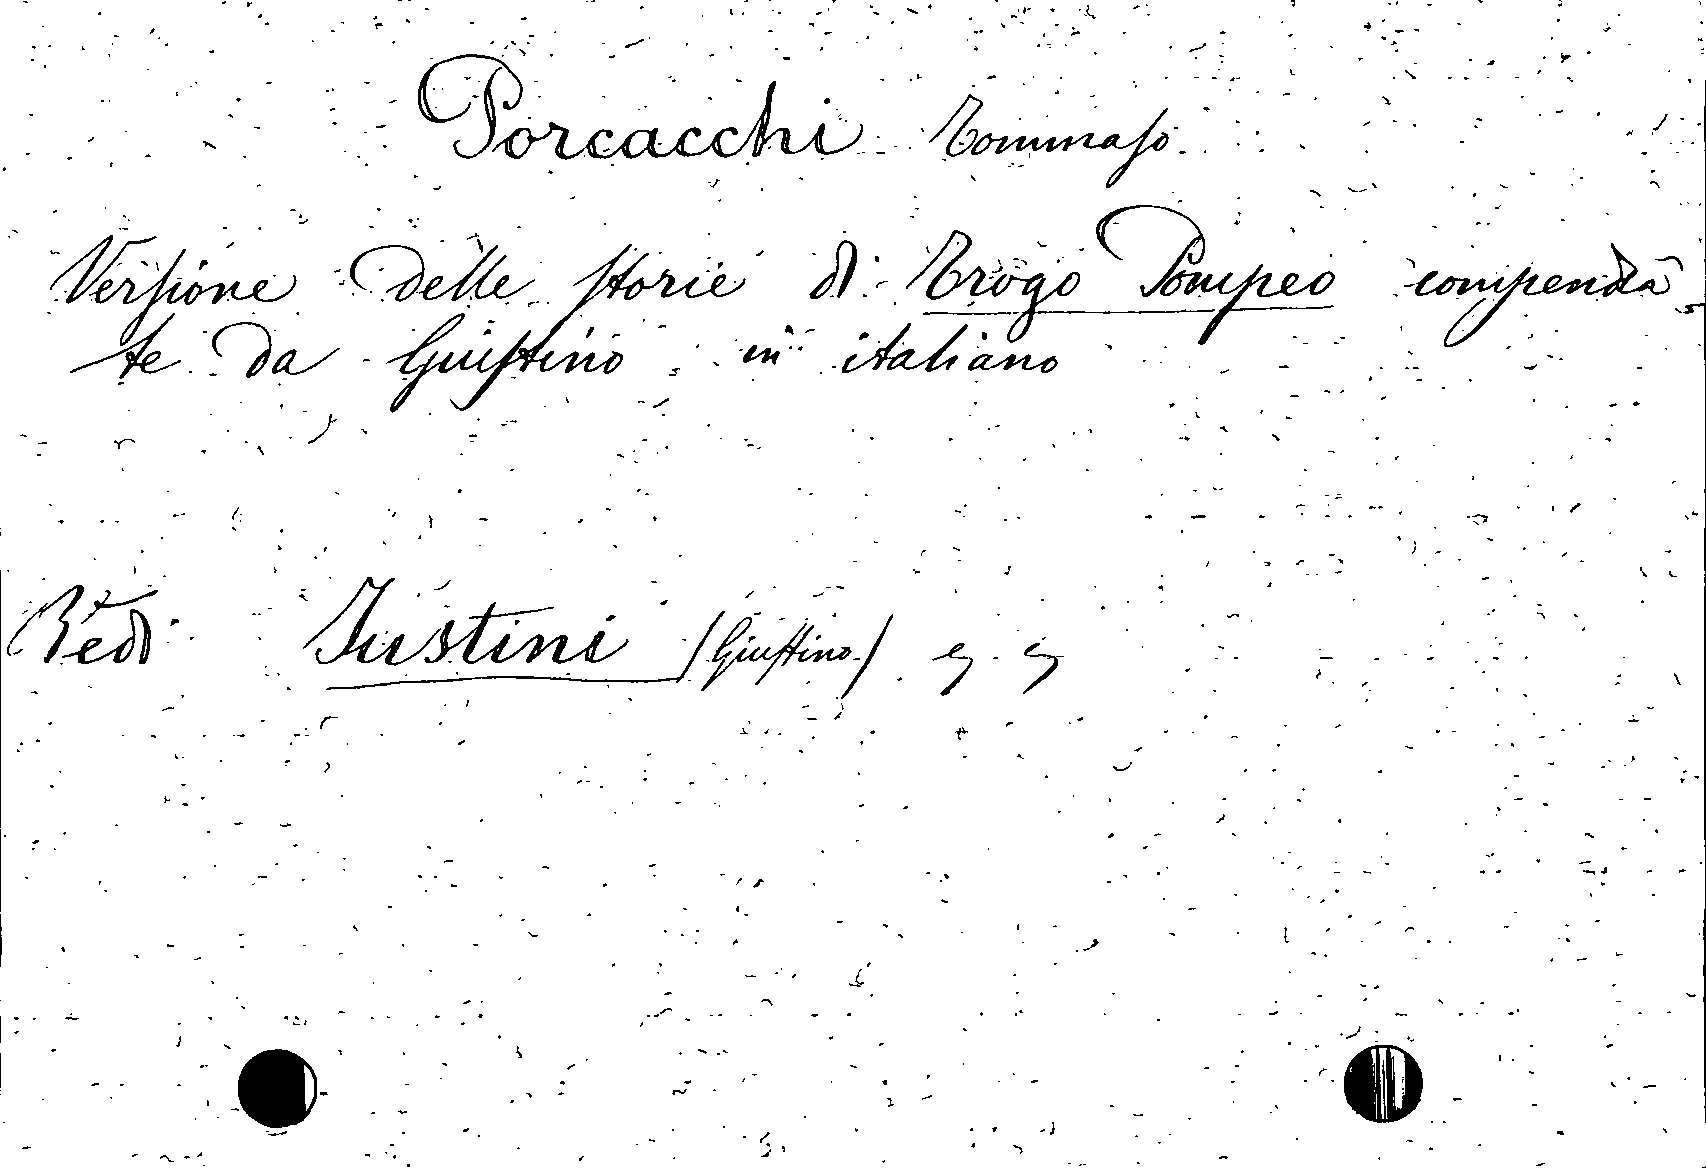 Porcacchi Tommaso
Versione delle storie di Trogo Pompeo compendia-
te da Giustino in italiano
Vedi Justini (Giustino)